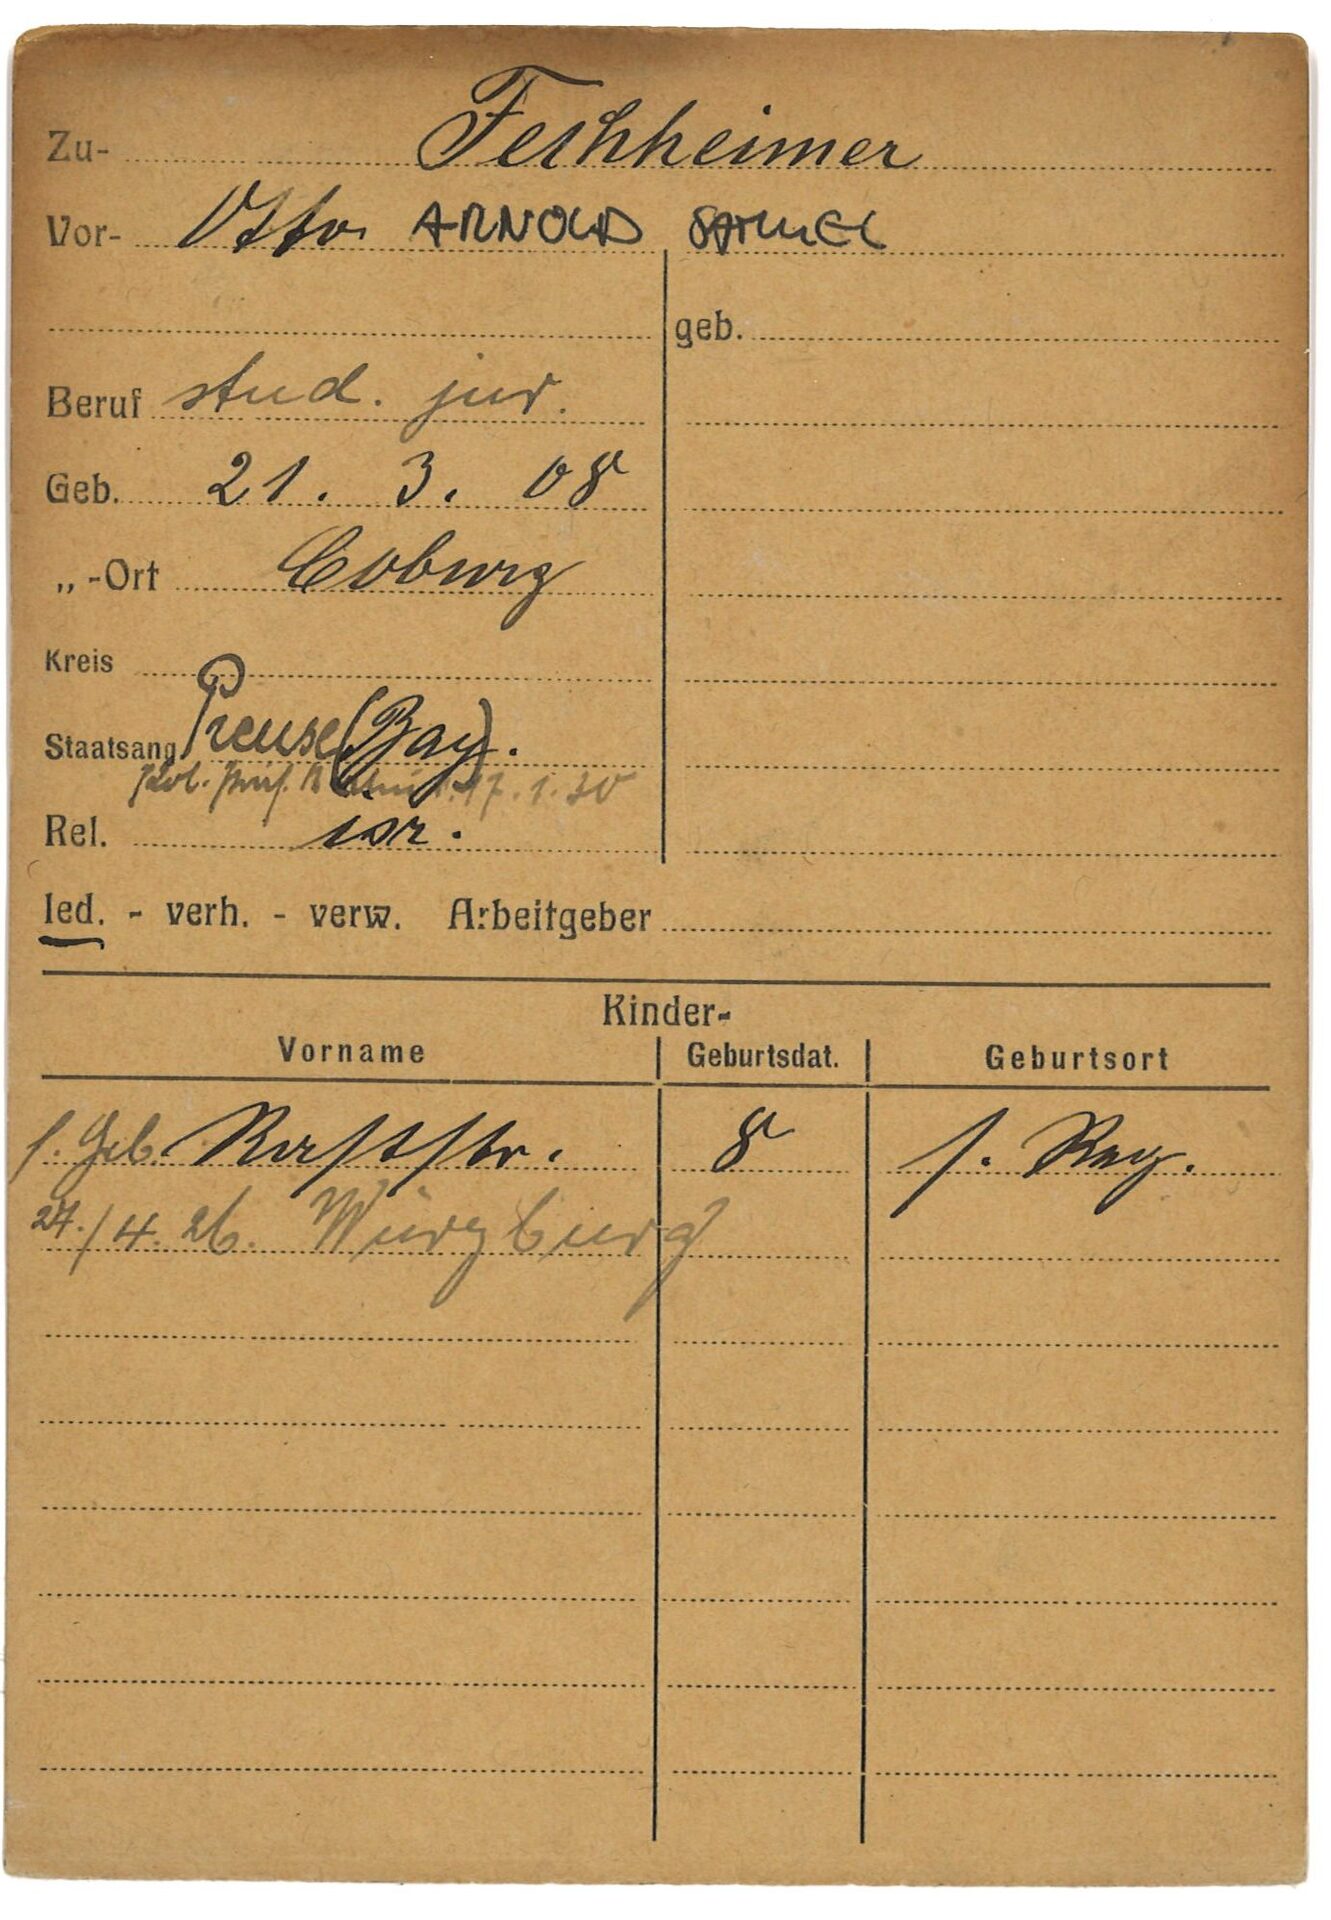 Zu- Fechheimer
Vor- Otto ARNOLD SAMUEL
geb.
Beruf stud. jur.
Geb. 21. 3. 08
„ -Ort Coburg
Kreis
Staatsang Preuse (Bay).
17.1.30
Rel. isr.
led. - verh. - verw. Arbeitgeber
Kinder-
Vorname Geburtsdat. Geburtsort
8 s. Reg.
27./4. 26. Würzburg